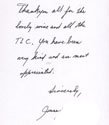 Thankyou all for the
lovely wine and all the
T.L.C. You have been
very kind and so most
appreciated.
Sincerely,